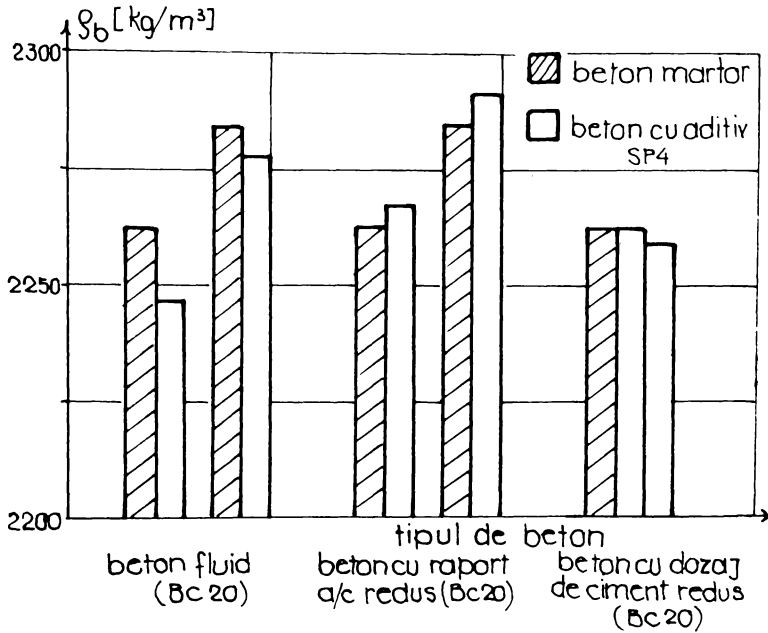 ρb [kg/m³]
2300
beton martor
beton cu aditiv
SP4
2250
2200
tipul de beton
beton fluid
(BC 20)
beton cu raport
a/c redus (Bc20)
beton cu dozaj
de ciment redus
(BC20)